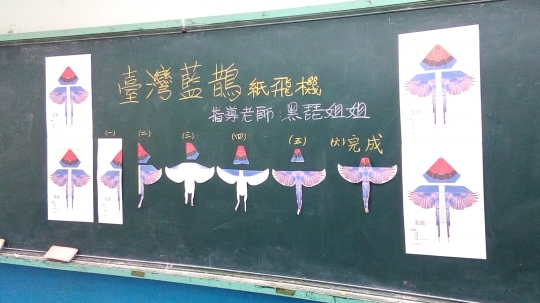 臺灣藍鵲紙飛機
指導老師:黑琵姐姐
(一) (二) (三) (四) (五) (六)完成